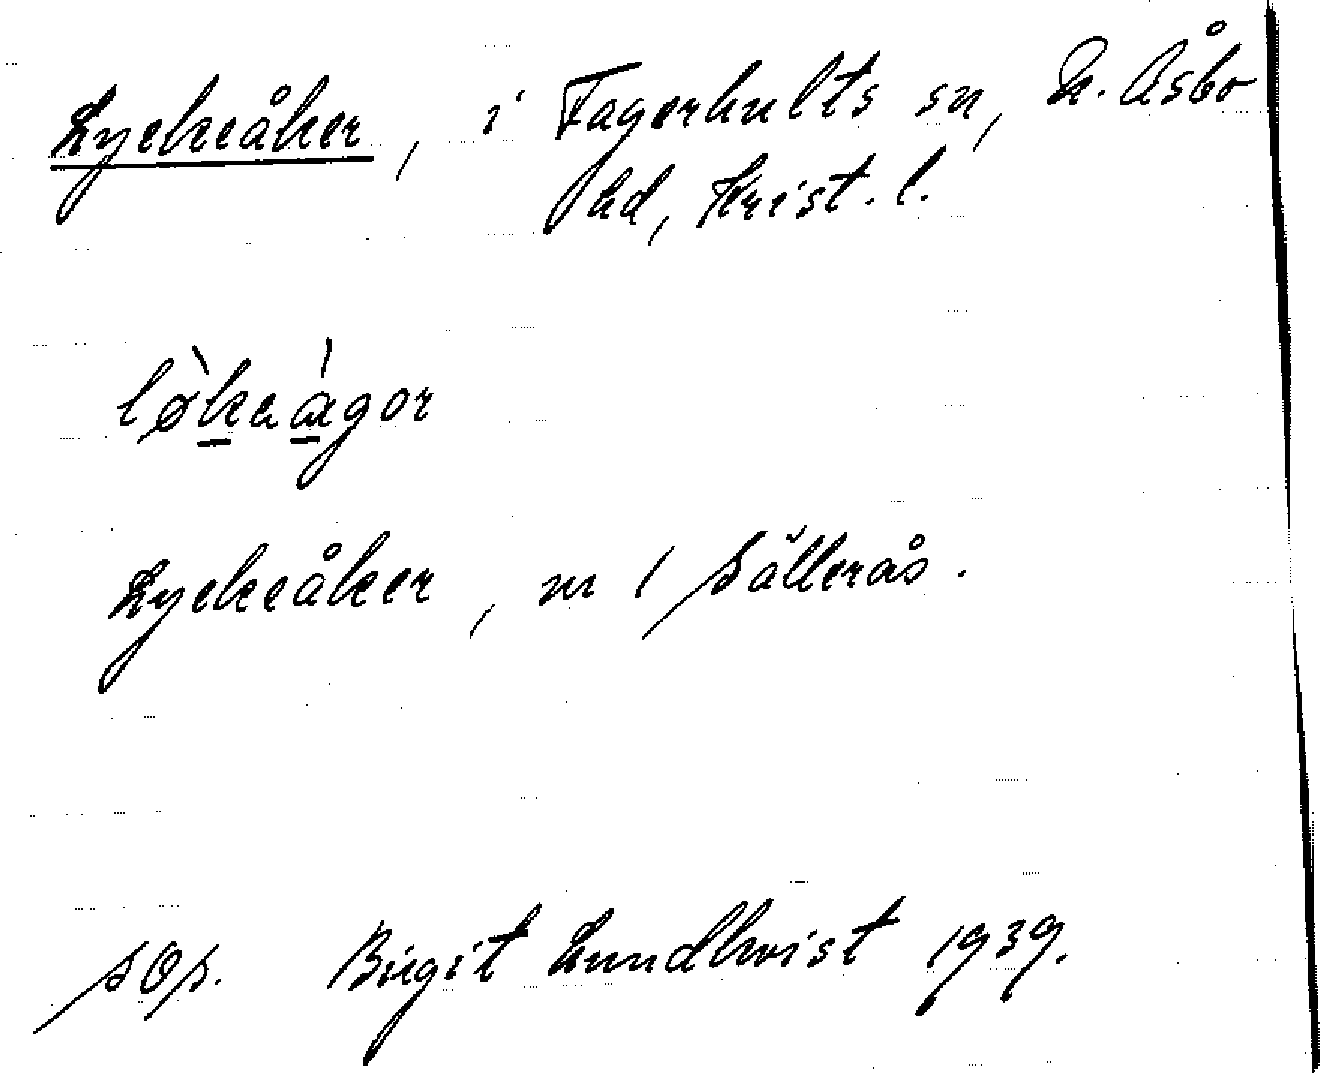 Lyckeåker, i Fagerhults sn, N. Åsbo
hd, Krist. l.
løkaągor
Lyckeåker, nr 1 Sällerås.
SOp. Birgit Lundkvist 1939.